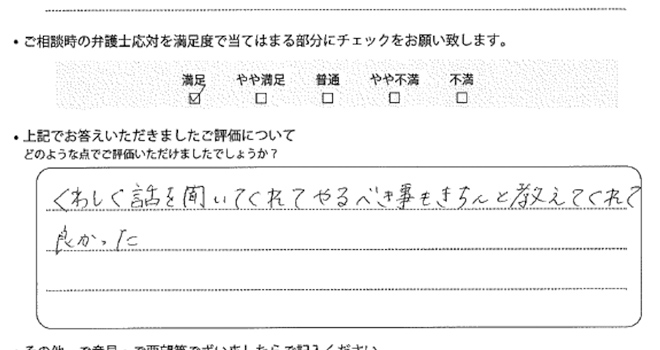 ・ご相談時の弁護士応対を満足度で当てはまる部分にチェックをお願い致します。
満足 やや満足 普通 やや不満 不満
☑ □ □ □ □
・上記でお答えいただきましたご評価について
どのような点でご評価いただけましたでしょうか?
くわしく話を聞いてくれてやるべき事もきちんと教えてくれて
良かった
・その他、ご意見・ご要望等ございましたらご記入ください